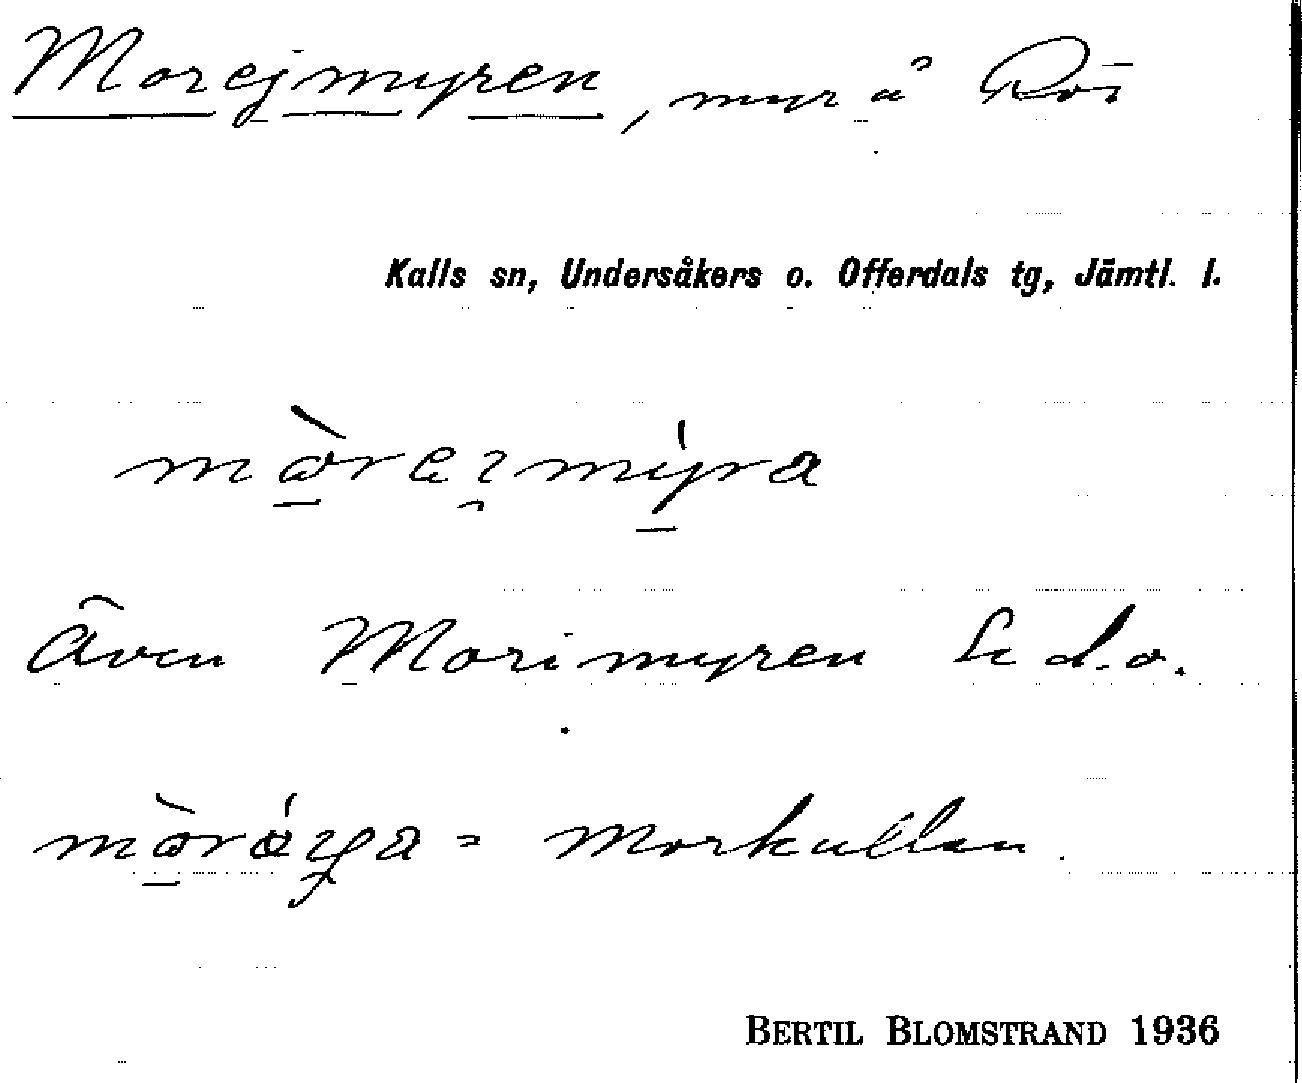 Morejmyren, myr å Röi
Kalls sn, Undersåkers o. Offerdals tg, Jämtl. l.
Även Morimyren
= morkullan
BERTIL BLOMSTRAND 1936